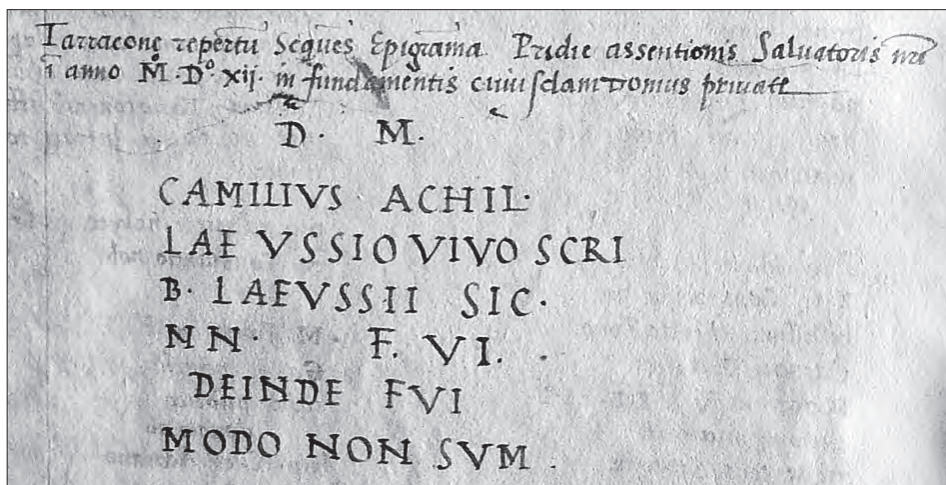 Tarracone repertū Seqūes Epigrāma. Pridie assentionis Saluatoris nrī
ī anno M.Dº.xij. in fundamentis cuiusdam domus priuate
D. M.
CAMILIVS ACHIL.
LAE VSSIO VIVO SCRI
B. LAEVSSII SIC.
NN. F. VI.
DEINDE FVI
MODO NON SVM .